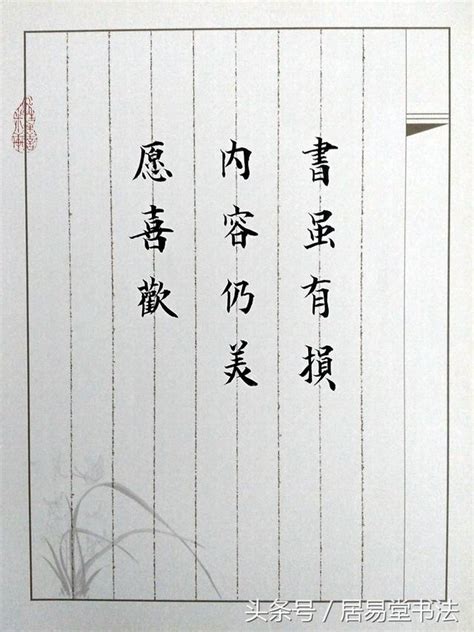 書虽有損
内容仍美
愿喜歡
头条号/居易堂书法